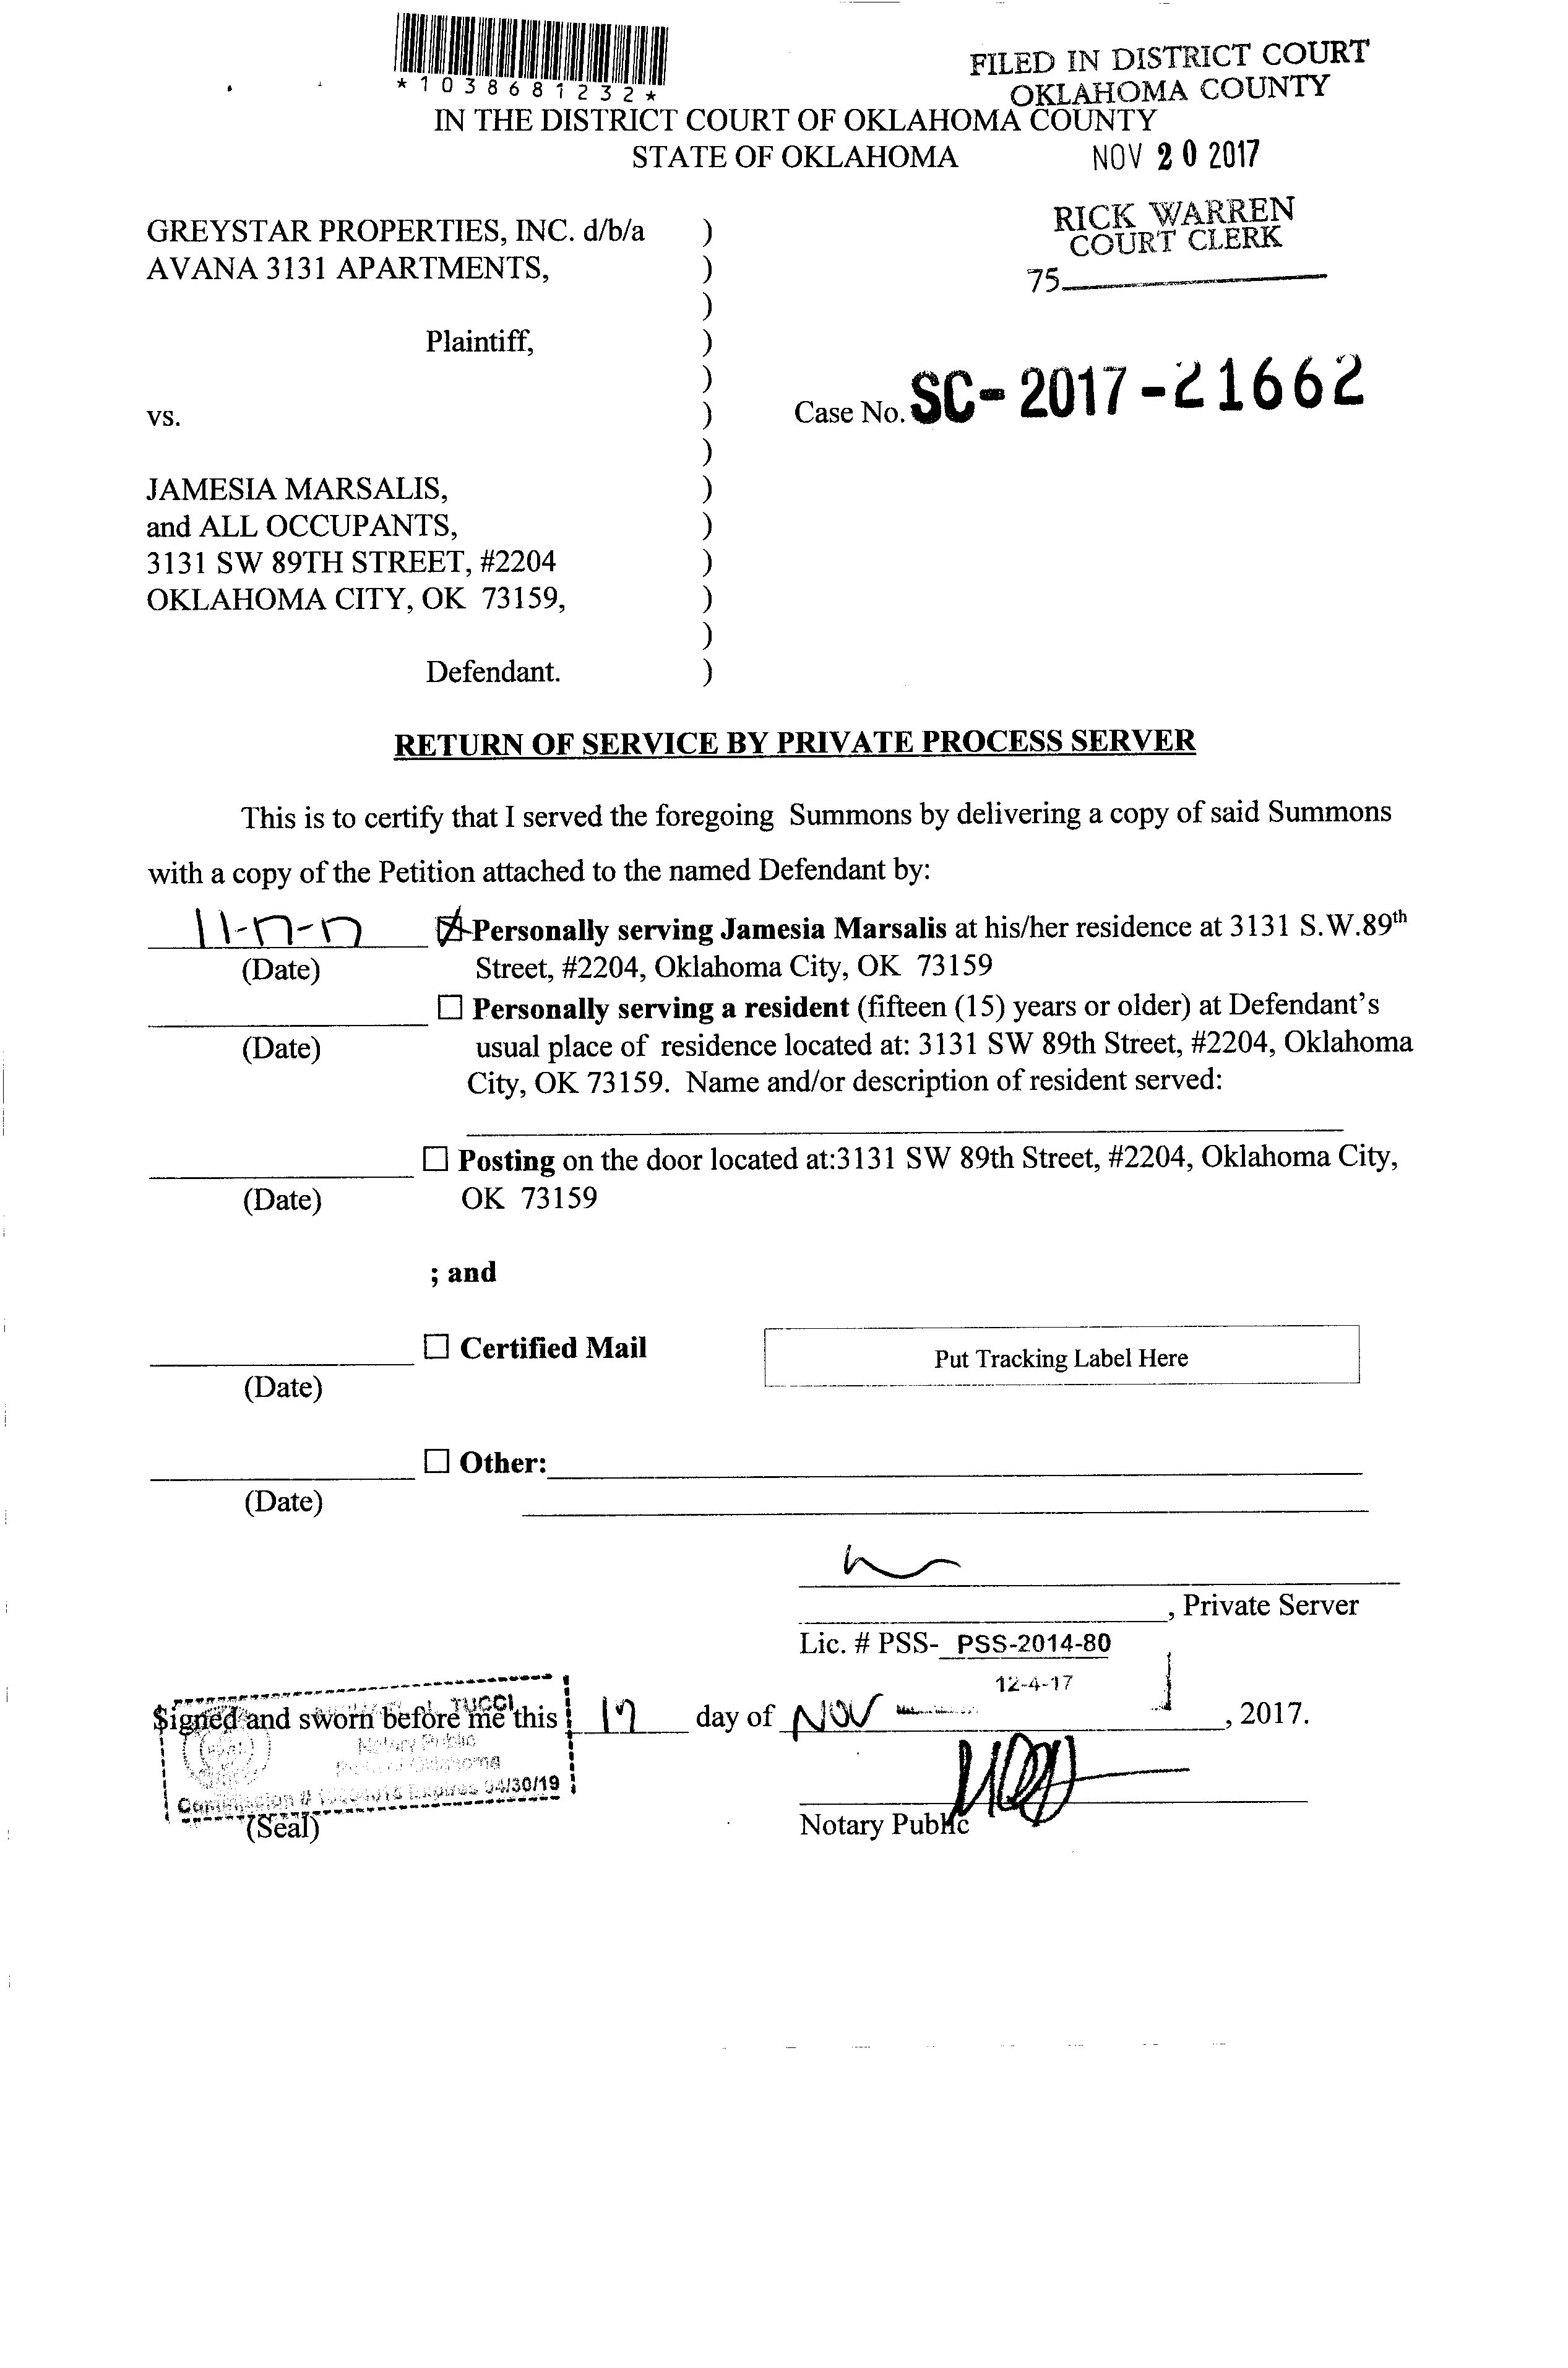 *1038681232*
FILED IN DISTRICT COURT
OKLAHOMA COUNTY
IN THE DISTRICT COURT OF OKLAHOMA COUNTY
STATE OF OKLAHOMA
NOV 20 2017
RICK WARREN
COURT CLERK
75
GREYSTAR PROPERTIES, INC. d/b/a )
AVANA 3131 APARTMENTS, )
)
Plaintiff, )
)
vs. )
Case No. SC-2017-21662
)
JAMESIA MARSALIS, )
and ALL OCCUPANTS, )
3131 SW 89TH STREET, #2204 )
OKLAHOMA CITY, OK 73159, )
)
Defendant. )
RETURN OF SERVICE BY PRIVATE PROCESS SERVER
This is to certify that I served the foregoing Summons by delivering a copy of said Summons
with a copy of the Petition attached to the named Defendant by:
11-17-17 Personally serving Jamesia Marsalis at his/her residence at 3131 S.W.89th
(Date) Street, #2204, Oklahoma City, OK 73159
☐ Personally serving a resident (fifteen (15) years or older) at Defendant's
(Date) usual place of residence located at: 3131 SW 89th Street, #2204, Oklahoma
City, OK 73159. Name and/or description of resident served:
☐ Posting on the door located at:3131 SW 89th Street, #2204, Oklahoma City,
(Date) OK 73159
; and
☐ Certified Mail Put Tracking Label Here
(Date)
☐ Other:
(Date)
, Private Server
Lic. # PSS- PSS-2014-80
12-4-17
Signed and sworn before me this 17 day of NOV , 2017.
TUCCI
Notary Public
Oklahoma
Commission # Expires 04/30/19
(Seal)
Notary Public